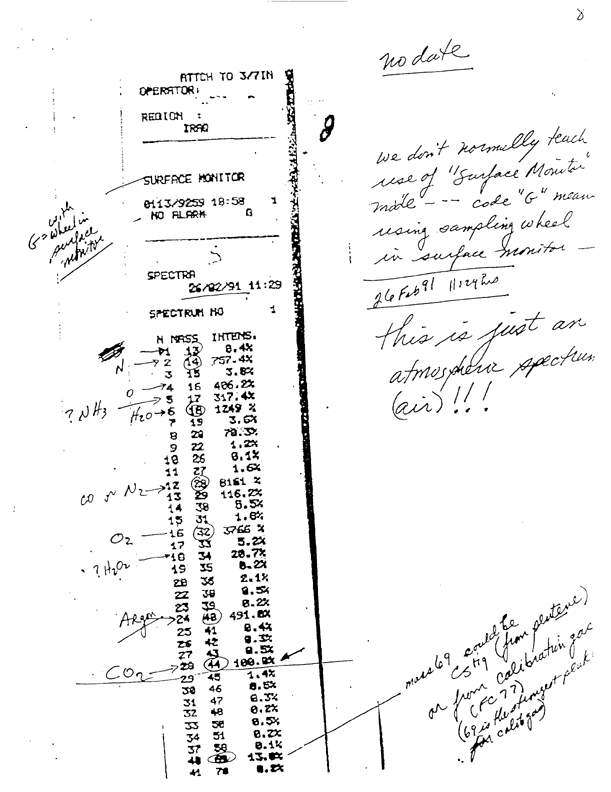 8
no date
ATTCH TO 3/7IN
OPERATOR:
REGION :
IRAQ
8
we don't normally teach
use of "Surface Monitor"
mode --- code "G" means
using sampling wheel
in surface monitor —
SURFACE MONITOR
0113/9259 18:58 1
NO ALARM G
with
G=wheel in
surface
monitor
SPECTRA
26/02/91 11:29
26 Feb 91 1129 hrs
this is just an
atmospheric spectrum
(air)!!!
SPECTRUM NO 1
N MASS INTENS.
1 13 8.4%
N → 2 14 757.4%
3 15 3.8%
O → 4 16 406.2%
? NH3 → 5 17 317.4%
H2O → 6 18 1249 %
7 19 3.6%
8 20 78.3%
9 22 1.2%
10 26 0.1%
11 27 1.6%
CO or N2 → 12 28 8161 %
13 29 116.2%
14 30 5.5%
15 31 1.8%
O2 → 16 32 3766 %
17 33 5.2%
? H2O2 → 18 34 20.7%
19 35 0.2%
20 36 2.1%
22 38 0.5%
23 39 0.2%
Argon → 24 40 491.0%
25 41 0.4%
26 42 0.3%
27 43 0.5%
CO2 → 28 44 100.0%
29 45 1.4%
30 46 0.5%
31 47 0.3%
32 48 0.2%
33 50 0.5%
34 51 0.2%
37 58 0.1%
40 69 13.0%
41 70 0.2%
mass 69 could be
C5H9 (from pentene)
or from calibration gas
(FC77)
(69 is the strongest peak
for calib gas)